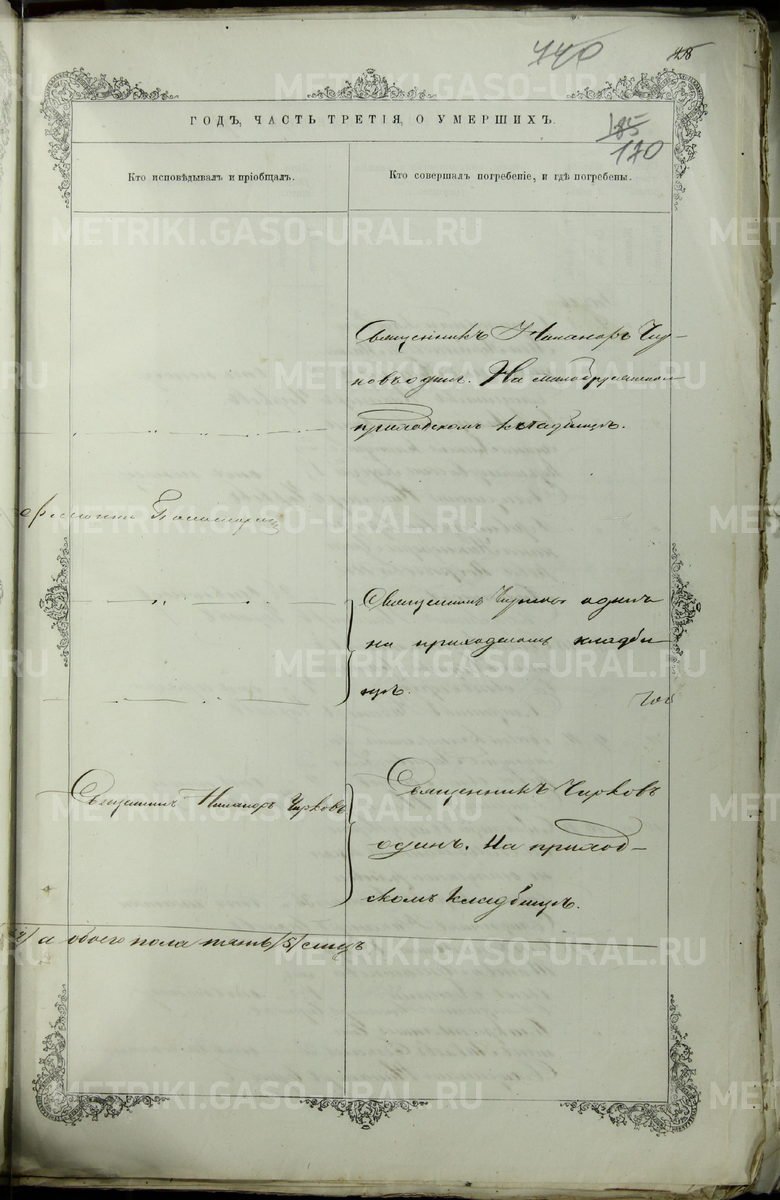 440
185
170
ГОДЪ, ЧАСТЬ ТРЕТІЯ, О УМЕРШИХЪ.
Кто исповѣдывалъ и пріобщалъ.
Кто совершалъ погребеніе, и гдѣ погребены.
Священникъ Никаноръ Чир-
ковъ одинъ. На
приходскомъ кладбищѣ.
Священникъ Чирковъ одинъ
на приходскомъ кладби
щѣ.
Священникъ Никаноръ Чирковъ
Священникъ Чирковъ
одинъ. На приход-
скомъ кладбищѣ.
а обоего пола пять /5/
METRIKI.GASO-URAL.RU